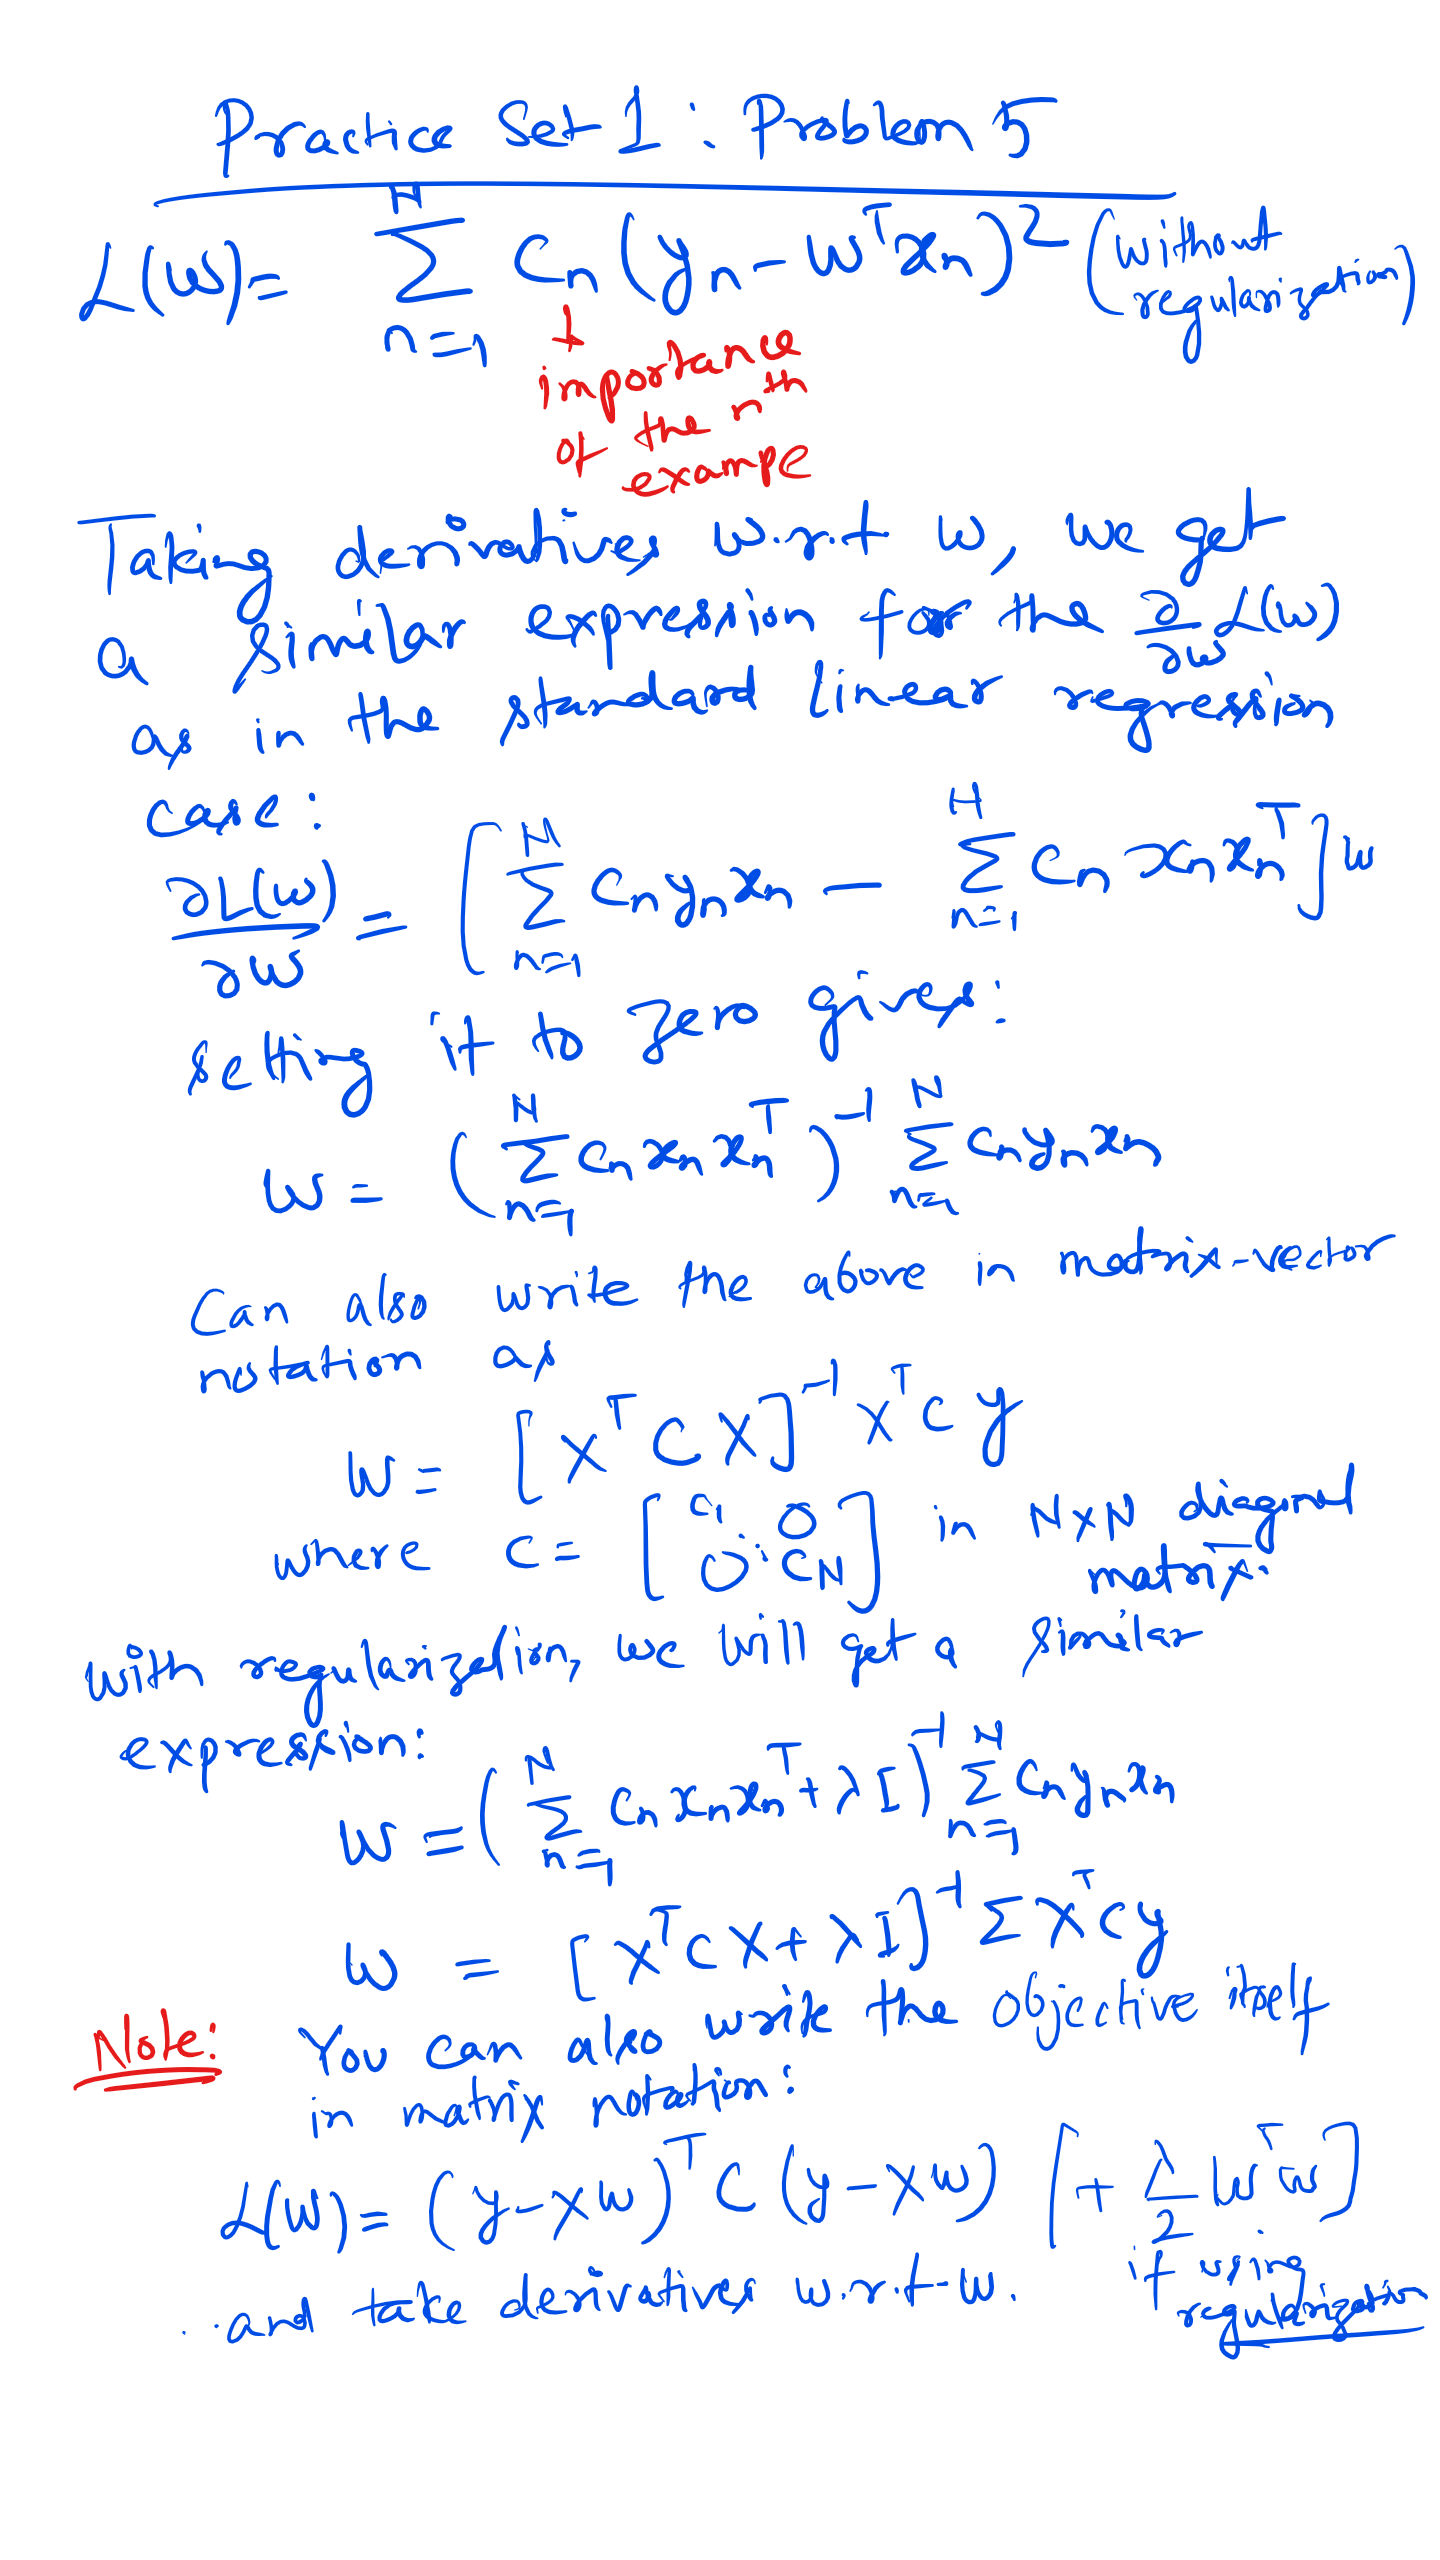 Practice Set 1 : Problem 5
L(w) = ∑_{n=1}^{N} c_n (y_n - w^T x_n)^2 (without regularization)
↓
importance
of the nth
exampe
Taking derivatives w.r.t w, we get
a similar expression for the ∂/∂w L(w)
as in the standard linear regression
case:
∂L(w)/∂w = [ ∑_{n=1}^{N} c_n y_n x_n - ∑_{n=1}^{N} c_n x_n x_n^T ] w
setting it to zero gives:
w = ( ∑_{n=1}^{N} c_n x_n x_n^T )^{-1} ∑_{n=1}^{N} c_n y_n x_n
Can also write the above in matrix-vector
notation as
w = [ X^T C X ]^{-1} X^T C y
where C = [ c_1 0 ⋱ 0 c_N ] in N×N diagonal
matrix.
with regularization, we will get a similar
expression:
w = ( ∑_{n=1}^{N} c_n x_n x_n^T + λI )^{-1} ∑_{n=1}^{N} c_n y_n x_n
w = [ X^T C X + λI ]^{-1} ∑ X^T C y
Note: You can also write the objective itself
in matrix notation:
L(w) = (y - Xw)^T C (y - Xw) [ + λ/2 w^T w ]
.. and take derivatives w.r.t. w. if using
regularization